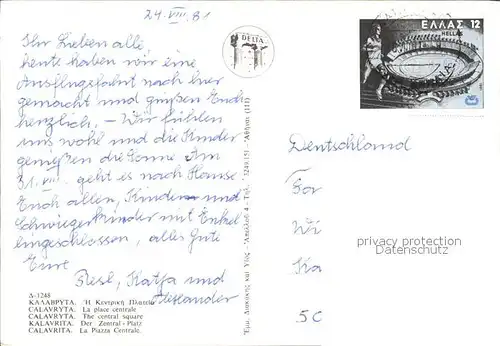 24. VIII. 81
Ihr Lieben alle,
heute haben wir eine
Ausflugsfahrt nach hier
gemacht und grüßen Euch
herzlich, – Wir fühlen
uns wohl und die Kinder
genießen die Sonne. Am
31. VIII. geht es nach Hause
Euch allen, Kinder und
Schwiegerkinder mit Enkel
eingeschlossen, alles Gute
Eure
Resl, Katja und
Alexander
Δ-1248
ΚΑΛΑΒΡΥΤΑ. Ἡ Κεντρικὴ Πλατεῖα
CALAVRYTA. La place centrale
CALAVRYTA. The central square
KALAVRITA. Der Zentral-Platz
CALAVRITA. La Piazza Centrale.
DELTA
Ἐμμ. Διακάκης καὶ Υἱός - Ἀπελλοῦ 4 - Τηλ. 3249.151 - Ἀθῆναι (111)
ΕΛΛΑΣ 12
HELLAS
Deutschland
Fa
Wi
Ka
50
privacy protection
Datenschutz